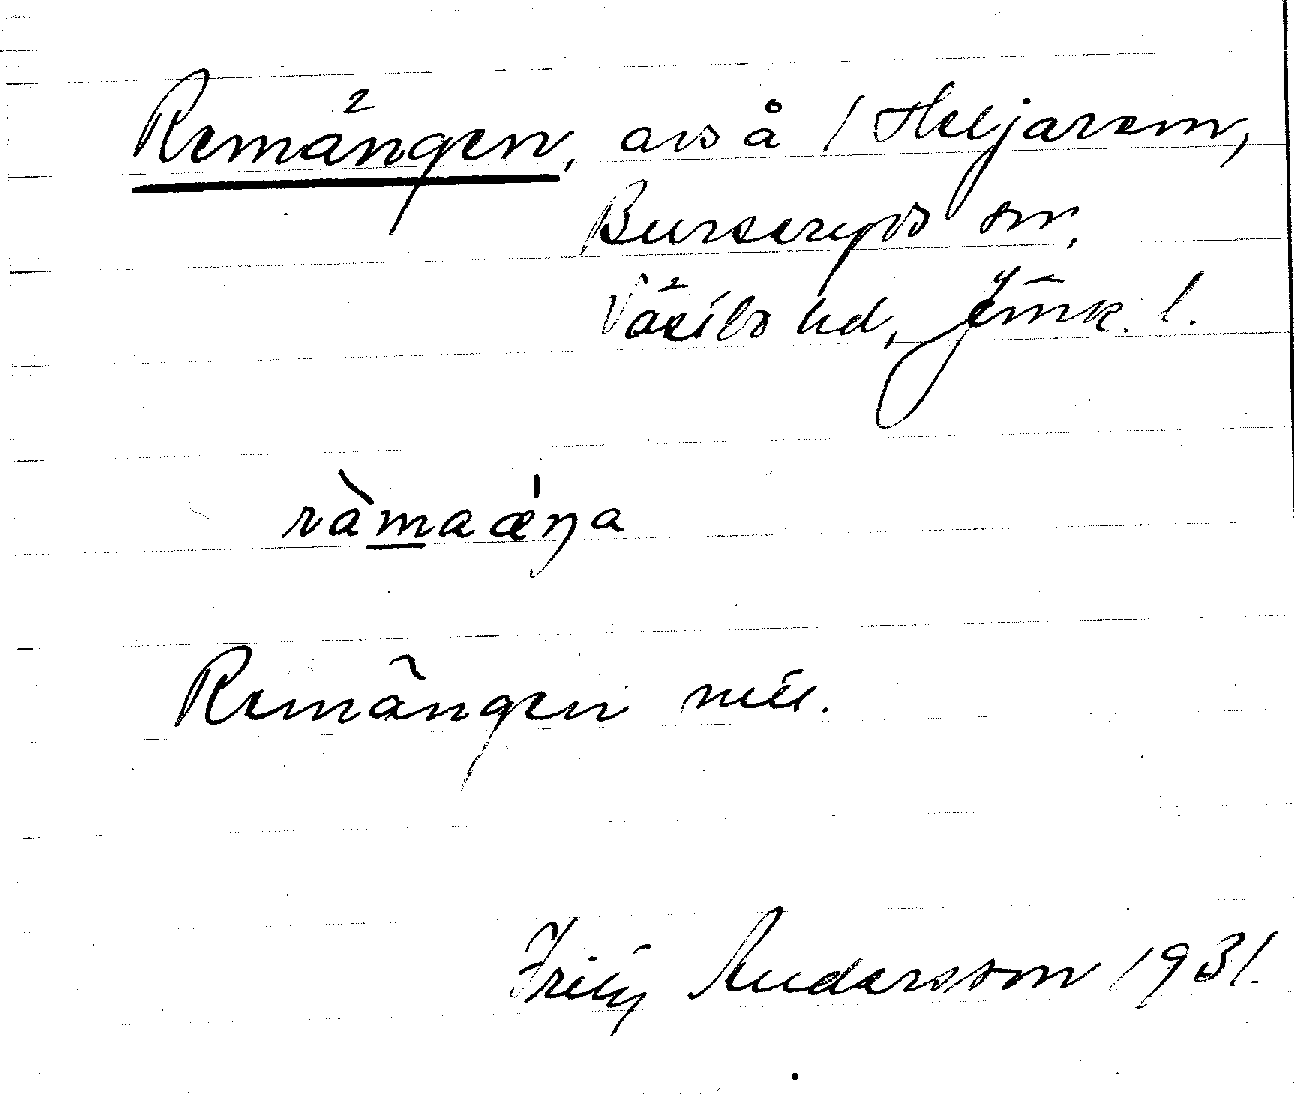 Remängen, avs å Heljarem,
Burseryds sn,
Västbo hd, Jönk. l.
ràmaǽŋa
Remängen
Fritz Andersson 1931.